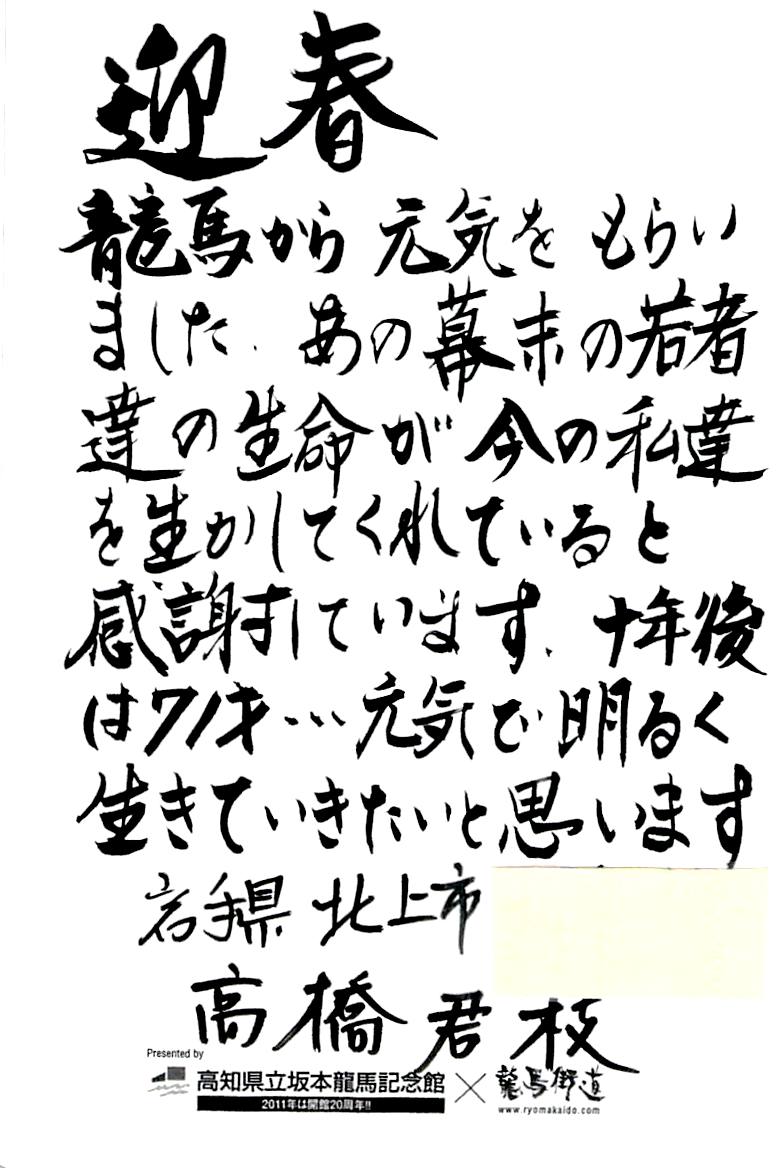 迎春
龍馬から元気をもらい
ました。あの幕末の若者
達の生命が今の私達
を生かしてくれていると
感謝しています。十年後
は71才…元気で明るく
生きていきたいと思います
岩手県北上市
高橋君枝
Presented by
高知県立坂本龍馬記念館×龍馬街道
2011年は開館20周年!!
www.ryomakaido.com